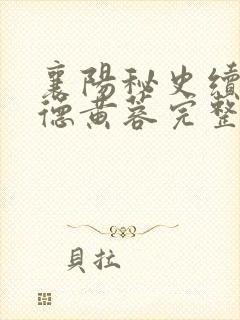 襄陽秘史續
德黃蓉完整
貝拉